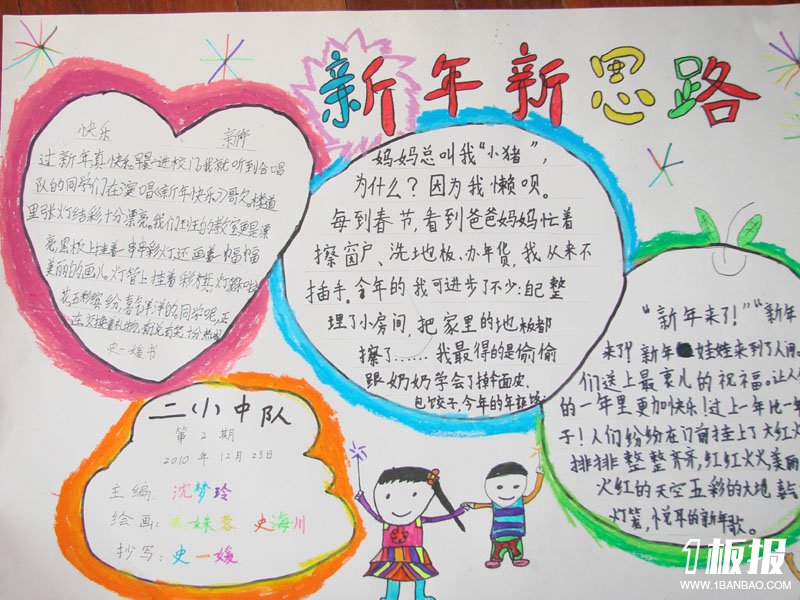 新年新思路
快乐 新年
过新年真快乐!早晨一进校门我就听到合唱
队的同学们在演唱《新年快乐》哥久。楼道
里张灯结彩十分漂亮。我们班的教室更是漂
亮黑板上挂着一串串彩灯还画着一幅幅
美丽的画儿。灯管上挂着彩旗灯笼啦
花五彩缤纷喜洋洋的同学呢,正
在交换着礼物,有说有笑十分热闹
史一媛书
妈妈总叫我“小猪”,
为什么?因为我懒呗。
每到春节,看到爸爸妈妈忙着
擦窗户、洗地板、办年货,我从来不
插手。今年的我可进步了不少:自己整
理了小房间,把家里的地板都
擦了……我最得意的是偷偷
跟奶奶学会了擀面皮、
包饺子,今年的年夜饭
“新年来了!”“新年
来了!新年娃娃来到了人间。
们送上最衷儿的祝福。让人
的一年里更加快乐!过上一年比一年
子!人们纷纷在门前挂上了大红灯
排排整整齐齐,红红火火,美丽
火红的天空五彩的大地 喜气
灯笼,悦耳的新年歌。
二小中队
第2期
2010年12月23日
主编:沈梦玲
绘画:史姝蓉 史海川
抄写:史一媛
1板报
WWW.1BANBAO.COM